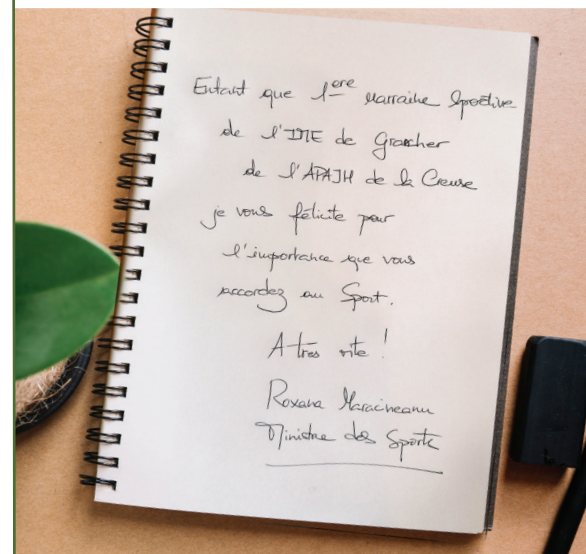 Entant que 1ere Marraine Sportive
de l'IME de Grancher
de l'APAJH de la Creuse
je vous félicite pour
l'importance que vous
accordez au Sport.
A tres vite !
Roxana Maracineanu
Ministre des Sports